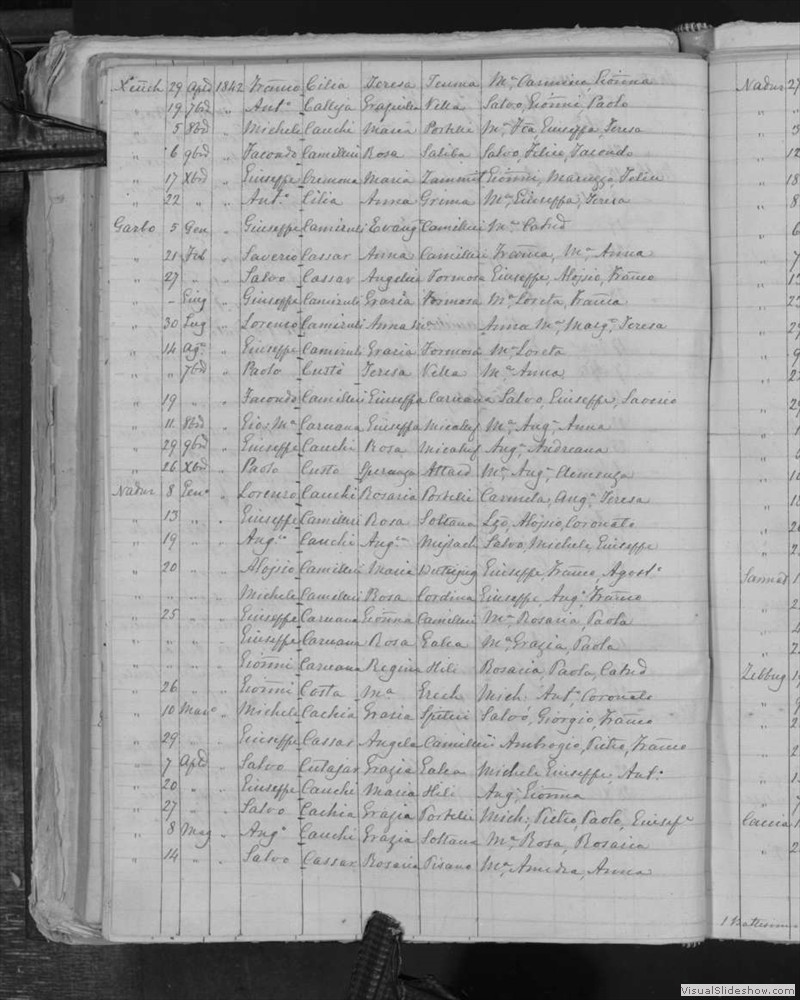 Xeuch 29 Aple 1842 Franco Cilia Teresa Teuma Ma Carmina, Gionna
" 19 7bre " Anto Calleja Grazulla Vella Salvo, Gionni, Paolo
" 5 8bre " Michele Cauchi Maria Portelli Ma Fca Giuseppa, Teresa
" 6 9bre " Facondo Camilleri Rosa Saliba Salvo, Felice, Facondo
" 17 Xbre " Giuseppe Cremona Maria Zammit Gionni, Maruzza, Felice
" 22 " " Anto Cilia Anna Grima Ma Giuseppa, Teresa
Garbo 5 Gen " Giuseppe Camilleri Evangta Camilleri Ma Catrid
" 21 Feb " Saverio Cassar Anna Camilleri Franca, Ma Anna
" 27 " " Salvo Cassar Angelica Formosa Giuseppe, Alojsio, Franco
" – Giug " Giuseppe Camilleri Grazia Formosa Ma Loreta, Franca
" 30 Lug " Lorenzo Camilleri Anna Ma Anna Ma, Marga, Teresa
" 14 Ago " Giuseppe Camilleri Grazia Formosa Ma Loreta
" " 7bre " Paolo Custo Teresa Vella Ma Anna
" 19 " " Facondo Camilleri Giuseppa Caruana Salvo, Giuseppe, Saverio
" 11 8bre " Gio: Ma Caruana Giuseppa Micallef Ma, Anga, Anna
" 29 9bre " Giuseppe Cauchi Rosa Micallef Anga, Andreana
" 26 Xbre " Paolo Custo Speranza Attard Ma, Anga, Clemenza
Nadur 8 Geno " Lorenzo Cauchi Rosaria Portelli Carmela, Anga, Teresa
" 13 " " Giuseppe Camilleri Rosa Soltana Lzo, Alojsio, Coronato
" 19 " " Ango Cauchi Anga Mejlach Salvo, Michele, Giuseppe
" 20 " " Alojsio Camilleri Maria Giuseppe, Franco, Agosto
" " " Michele Camilleri Rosa Cordina Giuseppe, Ango, Franco
" 25 " " Giuseppe Caruana Gionna Camilleri Ma, Rosaria, Paola
" " " " Giuseppe Caruana Rosa Galea Ma, Grazia, Paola
" " " " Gionni Caruana Regina Hili Rosaria, Paola, Catrid
" 26 " " Gionni Costa Ma Grech Mich: Anto, Coronato
" 10 Marzo " Michele Cachia Grazia Spiteri Salvo, Giorgio, Franco
" 29 " " Giuseppe Cassar Angela Camilleri Ambrogio, Pietro, Franco
" 7 Aple " Salvo Cutajar Grazia Galea Michele, Giuseppe, Anto
" 20 " " Giuseppe Cauchi Maria Hili Anga, Gionna
" 27 " " Salvo Cachia Grazia Portelli Mich:, Pietro, Paolo, Giusepe
" 8 Mag " Ango Cauchi Grazia Soltana Ma, Rosa, Rosaria
" 14 " " Salvo Cassar Rosaria Pisano Ma, Annidea, Anna
Nadur 27
Sannat 1
Zebbug 19
Caccia 1
1 Battesimo
VisualSlideshow.com